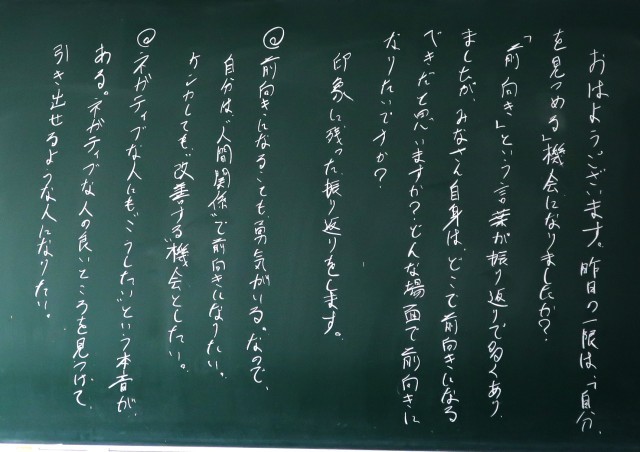 おはようございます。昨日の一限は、「自分
を見つめる」機会になりましたか?
「前向き」という言葉が振り返りで多くあり
ましたが、みなさん自身は、どこで前向きになる
べきだと思いますか?どんな場面で前向きに
なりたいですか?
印象に残った振り返りをします。
@前向きになることも、勇気がいる。なので、
自分は、"人間関係"で前向きになりたい。
ケンカしても"改善する"機会としたい。
@ネガティブな人にも"こうしたい"という本音が
ある。ネガティブな人の良いところを見つけて、
引き出せるような人になりたい。